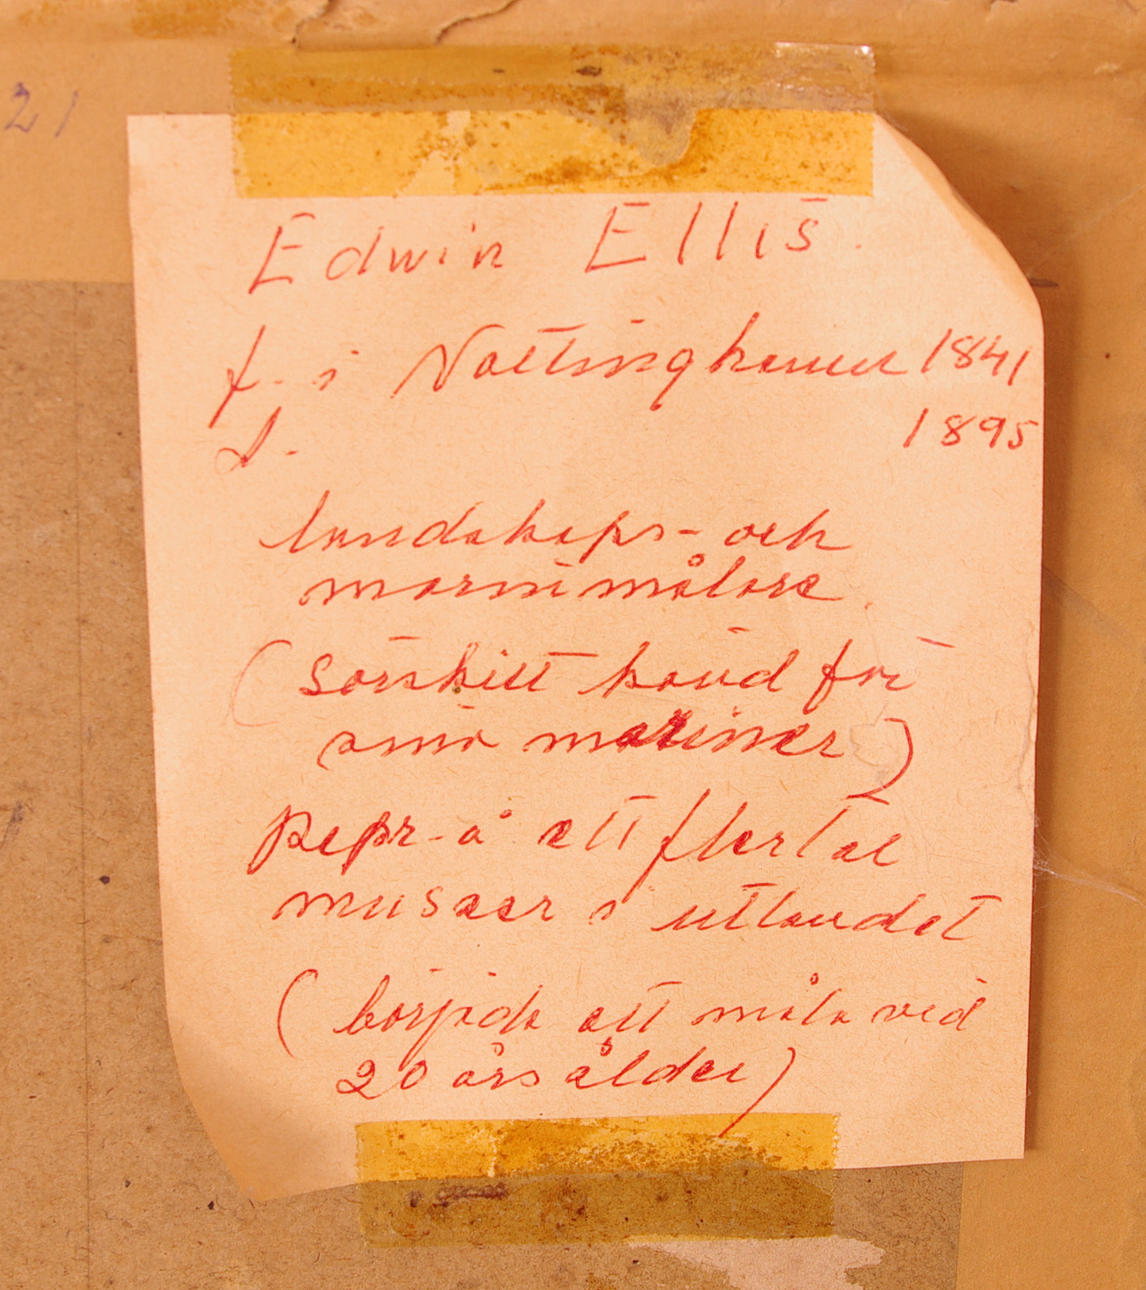 21
Edwin Ellis.
f. i Nottingham 1841
d. 1895
landskaps- och
marinmålare.
(Särskilt känd för
små mariner)
Repr. å ett flertal
museer i utlandet
(började att måla vid
20 års ålder)